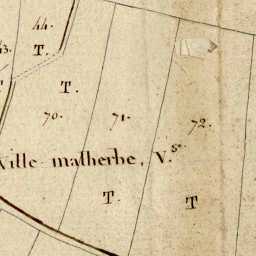 44.
43. T.
T.
70. 71. 72.
ville malherbe, V.se
T. T